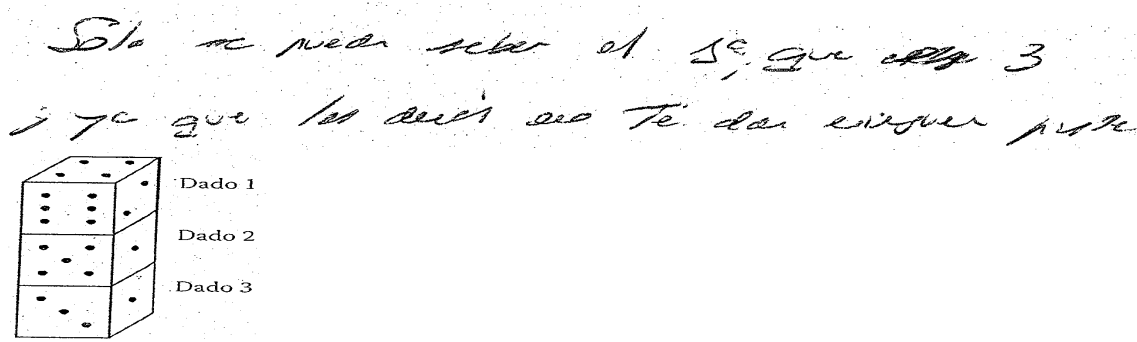 Solo se puede saber el 1º, que 3
ya que los demás no te dan ninguna pista
Dado 1
Dado 2
Dado 3